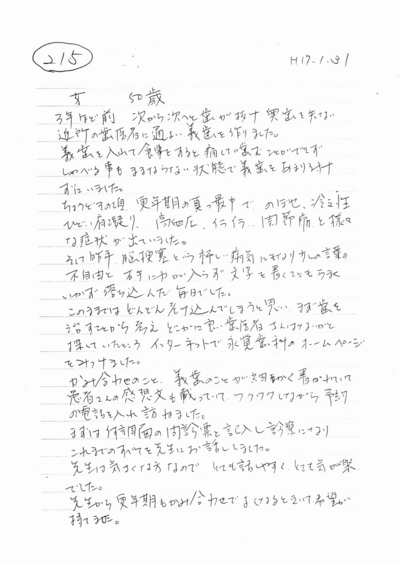 215
H17.1.31
女 50歳
3年ほど前 次から次へと歯が抜け 奥歯を失ない
近所の歯医者に通よい義歯を作りました。
義歯を入れて食事をすると痛くて歯むことができず
しゃべる事もままならない状態で義歯をあまり入れ
ずにいました。
ちょうどその頃、更年期の真っ最中で のぼせ、冷え性
ひどい肩凝り、高血圧、イライラ、関節痛と様々
な症状が出ていました。
そして昨年、脳梗塞という怖い病気にもなり少しの言葉の
不自由と 右手に力が入らず文字を書くことも
いかず落ち込んだ毎日でした。
このままではどんどん老け込んでしまうと思い まず歯を
治すことから考え どこかに良い歯医者さんはないかと
探していたところ インターネットで永覚歯科のホームページ
をみつけました。
かみ合わせのこと、義歯のことが細かく書かれていて
患者さんの感想文も載っていて、ワクワクしながら予約
の電話を入れ訪ねました。
まずは何項目の問診票を記入し診察になり
これまでのすべてを先生にお話ししました。
先生は気さくな方なので とても話しやすく、とても気が楽
でした。
先生から更年期もかみ合わせでよくなるときいて希望が
持てました。